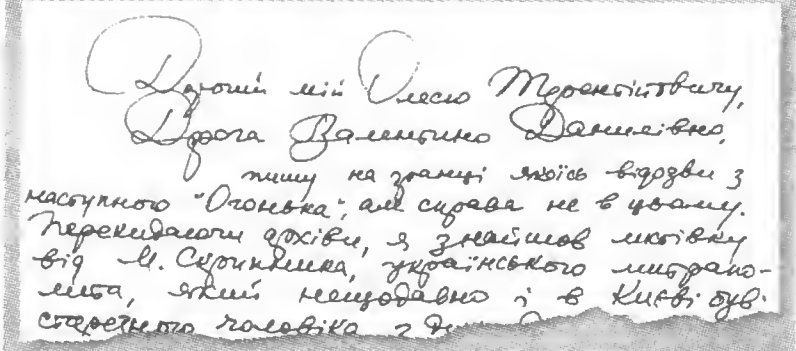 Дорогий мій Олесю Терентійовичу,
Дорога Валентино Данилівно,
пишу на гранці якоїсь відозви з
наступного "Огонька", але справа не в цьому.
Перекидаючи архіви, я знайшов листівку
від М. Скрипника, українського митропо-
лита, який нещодавно і в Києві був.
чоловіка з